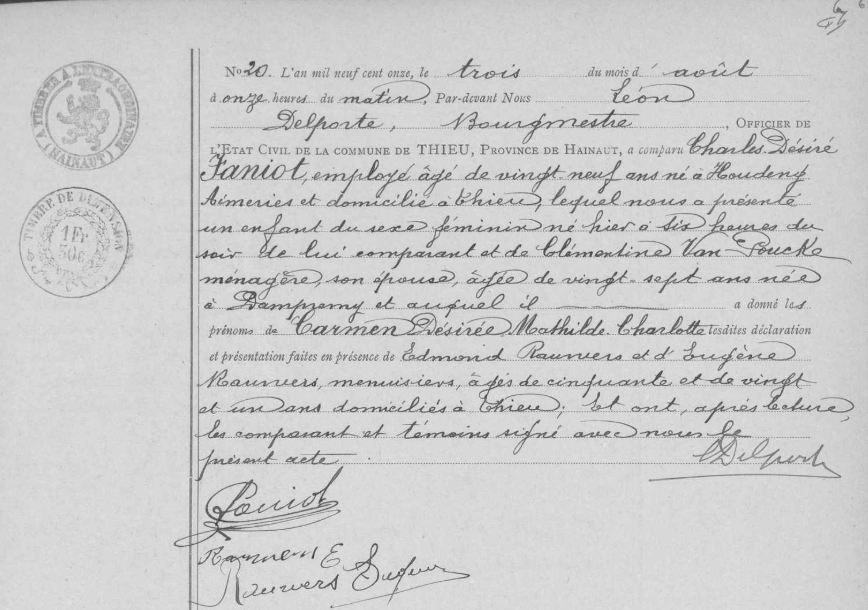 6
No 20. L'an mil neuf cent onze, le trois du mois d' août
à onze heures du matin, Par-devant Nous Léon
Delporte, Bourgmestre, OFFICIER DE
L'ETAT CIVIL DE LA COMMUNE DE THIEU, PROVINCE DE HAINAUT, a comparu Charles Désiré
Faniot, employé âgé de vingt-neuf ans né à Houdeng
Aimeries et domicilié à Thieu, lequel nous a présenté
un enfant du sexe féminin né hier à six heures du
soir de lui comparant et de Clémentine Van Poucke
ménagère, son épouse, âgée de vingt-sept ans née
à Dampremy et auquel il a donné les
prénoms de Carmen Désirée Mathilde Charlotte lesdites déclaration
et présentation faites en présence de Edmond Raunvers et d'Eugène
Raunvers, menuisiers, âgés de cinquante et de vingt
et un ans domiciliés à Thieu; Et ont, après lecture,
les comparant et témoins signé avec nous le
présent acte.
LDelporte
Faniot
E
Raunvers Eugène
A TIMBRER A L'EXTRAORDINAIRE
(HAINAUT)
TIMBRE DE DIMENSION
1 Fr
30c